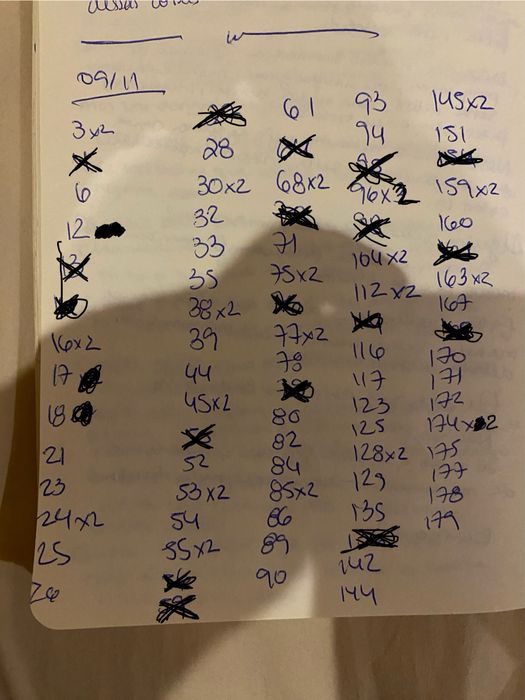 09/11
3x2
6
12
16x2
17
18
21
23
24x2
25
26
28
30x2
32
33
35
38x2
39
44
45x2
52
53x2
54
55x2
61
68x2
71
75x2
77x2
78
80
82
84
85x2
86
89
90
93
94
96x2
104x2
112x2
116
117
123
125
128x2
129
135
142
144
145x2
151
159x2
160
163x2
167
170
171
172
174x2
175
177
178
179